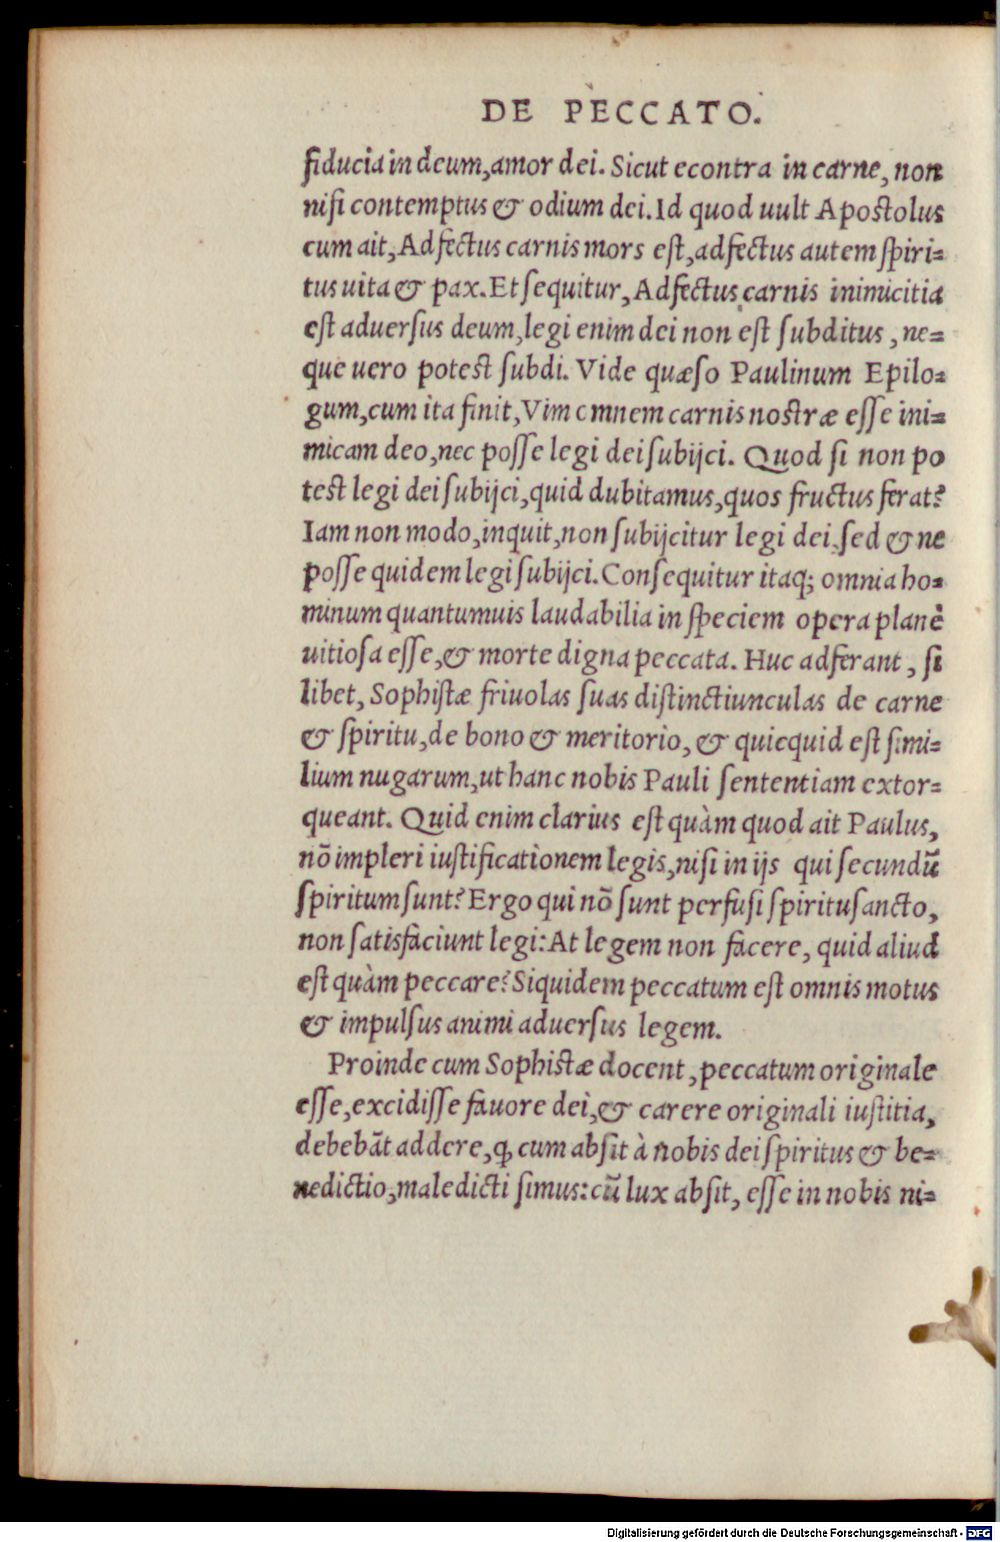 DE PECCATO.
fiducia in deum, amor dei. Sicut econtra in carne, non
nisi contemptus & odium dei. Id quod uult Apostolus
cum ait, Adfectus carnis mors est, adfectus autem spiri-
tus uita & pax. Et sequitur, Adfectus carnis inimicitia
est aduersus deum, legi enim dei non est subditus, ne-
que uero potest subdi. Vide quæso Paulinum Epilo-
gum, cum ita finit, Vim omnem carnis nostræ esse ini-
micam deo, nec posse legi dei subijci. Quod si non po
test legi dei subijci, quid dubitamus, quos fructus ferat?
Iam non modo, inquit, non subijcitur legi dei, sed & ne
posse quidem legi subijci. Consequitur itaq; omnia ho-
minum quantumuis laudabilia in speciem opera planè
uitiosa esse, & morte digna peccata. Huc adferant, si
libet, Sophistæ friuolas suas distinctiunculas de carne
& spiritu, de bono & meritorio, & quicquid est simi-
lium nugarum, ut hanc nobis Pauli sententiam extor-
queant. Quid enim clarius est quàm quod ait Paulus,
nõ impleri iustificationem legis, nisi in ijs qui secundũ
spiritum sunt? Ergo qui nõ sunt perfusi spiritu sancto,
non satisfaciunt legi: At legem non facere, quid aliud
est quàm peccare? Siquidem peccatum est omnis motus
& impulsus animi aduersus legem.
Proinde cum Sophistæ docent, peccatum originale
esse, excidisse fauore dei, & carere originali iustitia,
debebãt addere, ꝙ cum absit à nobis dei spiritus & be-
nedictio, maledicti simus: cũ lux absit, esse in nobis ni-
Digitalisierung gefördert durch die Deutsche Forschungsgemeinschaft - DFG